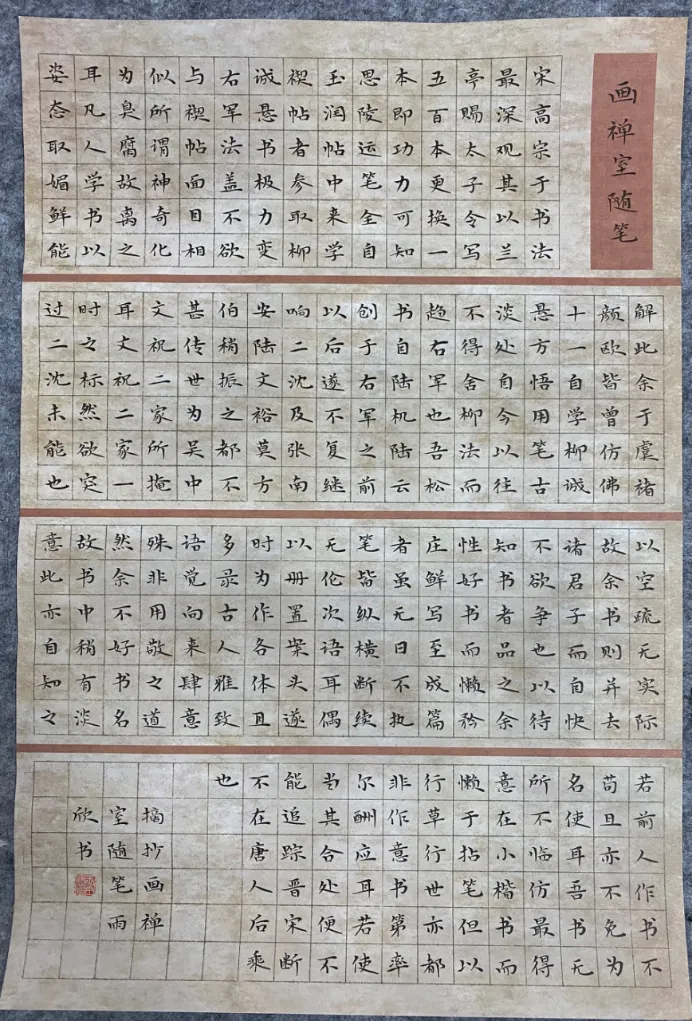 画禅室随笔
宋高宗于书法
最深观其以兰
亭赐太子令写
五百本更换一
本即功力可知
思陵运笔全自
玉润帖中来学
禊帖者参取柳
诚悬书极力变
右军法盖不欲
与禊帖面目相
似所谓神奇化
为臭腐故离之
耳凡人学书以
姿态取媚鲜能
解此余于虞褚
颜欧皆曾仿佛
十一自学柳诚
悬方悟用笔古
淡处自今以往
不得舍柳法而
趋右军也吾松
书自陆机陆云
创于右军之前
以后遂不复继
响二沈及张南
安陆文裕莫方
伯稍振之都不
甚传世为吴中
文祝二家所掩
耳文祝二家一
时之标然欲突
过二沈未能也
以空疏无实际
故余书则并去
诸君子而自快
不欲争也以待
知书者品之余
性好书而懒矜
庄鲜写至成篇
者虽无日不执
笔皆纵横断续
无伦次语耳偶
以册置案头遂
时为作各体且
多录古人雅致
语觉向来肆意
殊非用敬之道
然余不好书名
故书中稍有淡
意此亦自知之
若前人作书不
苟且亦不免为
名使耳吾书无
所不临仿最得
意在小楷书而
懒于拈笔但以
行草行世亦都
非作意书第率
尔酬应耳若使
当其合处便不
能追踪晋宋断
不在唐人后乘
也
摘抄画禅
室随笔雨
欣书